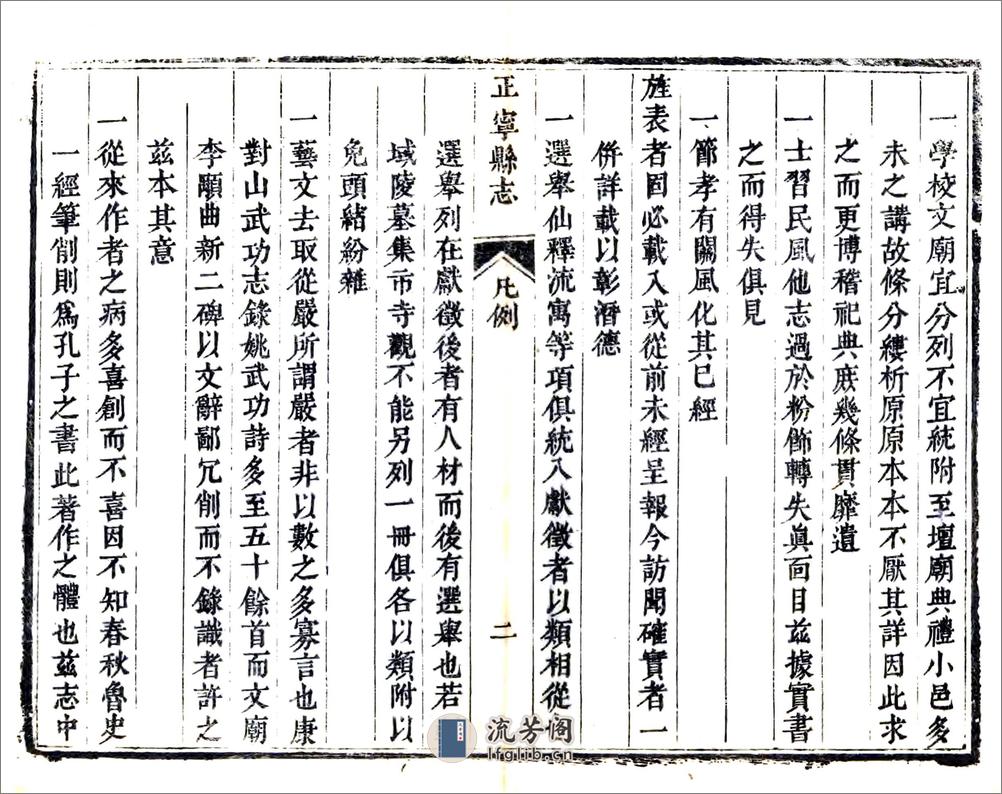 一學校文廟宜分列不宜統附至壇廟典禮小邑多
未之講故條分縷析原原本本不厭其詳因此求
之而更博稽祀典庶幾條貫靡遺
一士習民風他志過於粉飾轉失眞面目茲據實書
之而得失俱見
一節孝有關風化其已經
旌表者固必載入或從前未經呈報今訪聞確實者一
倂詳載以彰潛德
一選舉仙釋流寓等項俱統入獻徵者以類相從也
正寧縣志
凡例
二
選舉列在獻徵後者有人材而後有選舉也若
域陵墓集市寺觀不能另列一冊俱各以類附以
免頭緒紛雜
一藝文去取從嚴所謂嚴者非以數之多寡言也康
對山武功志錄姚武功詩多至五十餘首而文廟
李顒曲新二碑以文辭鄙冗削而不錄識者許之
茲本其意
一從來作者之病多喜創而不喜因不知春秋魯史
一經筆削則爲孔子之書此著作之體也茲志中
流芳阁
lfglib.cn